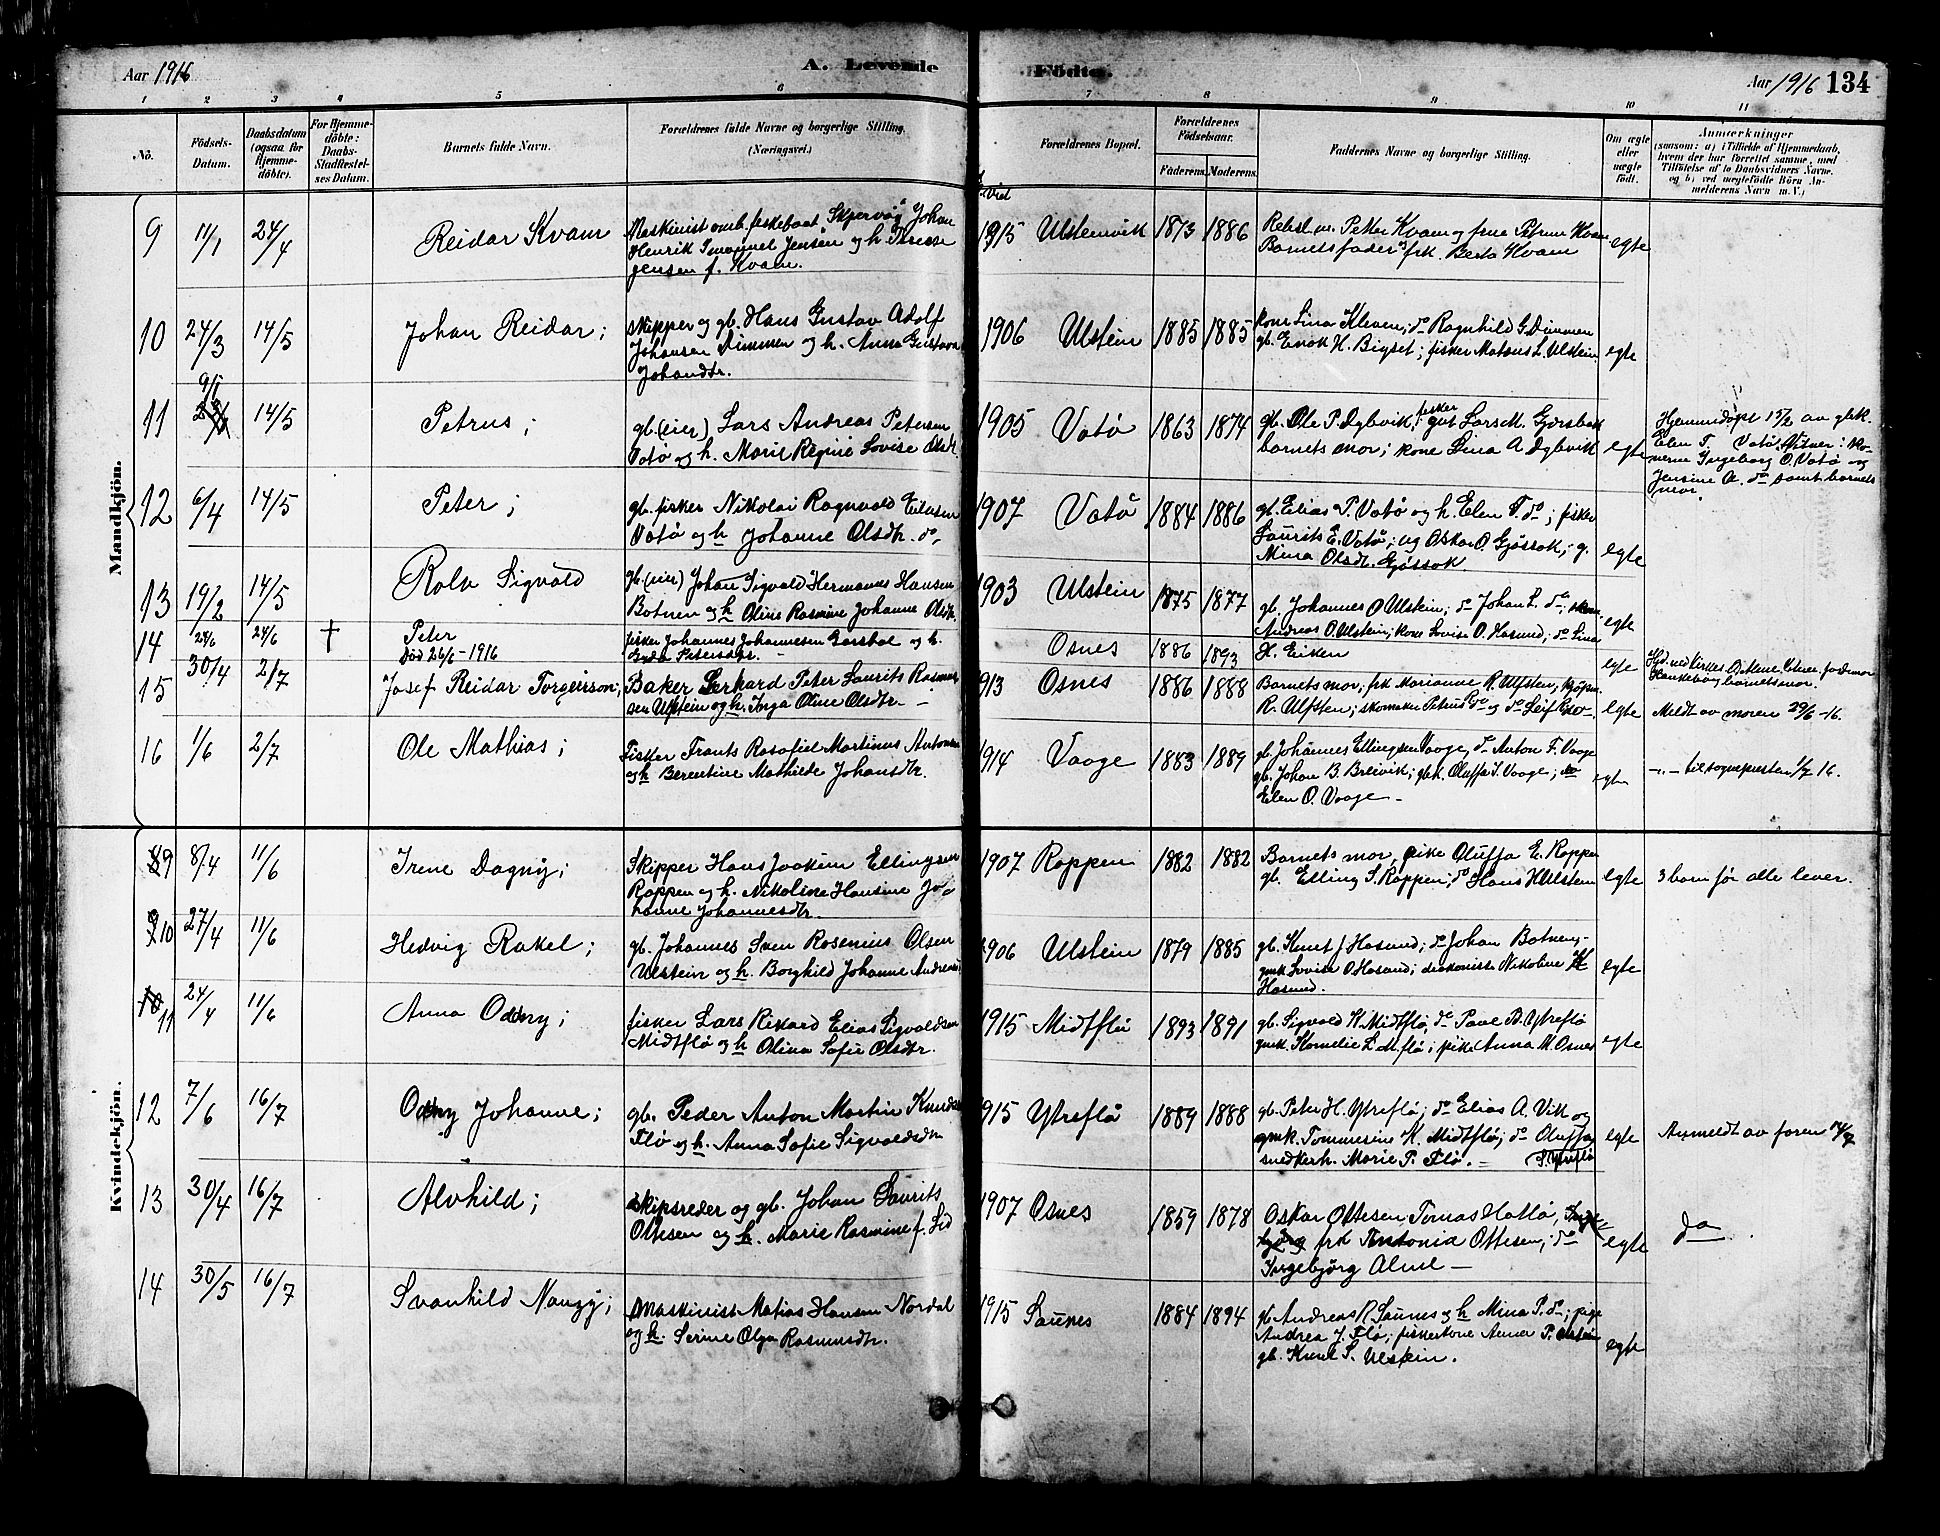 Aar 1916
A. Levende
Fødte.
Aar 1916 134
1 2 3 4 5 6 7 8 9 10 11
No.
Födsels-
Datum.
Daabsdatum
(ogsaa for
Hjemme-
döbte).
For Hjemme-
döbte:
Daabs-
Stadfæstel-
ses Datum.
Barnets fulde Navn.
Forældrenes fulde Navne og borgerlige Stilling.
(Næringsvei.)
Forældrenes Bopæl.
Forældrenes
Födselsaar.
Faderens. Moderens.
Faddernes Navne og borgerlige Stilling.
Om ægte
eller
uægte
födt.
Anmærkninger
(saasom: a) i Tilfælde af Hjemmedaab,
hvem der har forrettet samme, med
Tilföielse af to Daabsvidners Navne.
og b) ved uægtefödte Börn An-
melderens Navn m. V.)
Viet
Mandkjön.
9 11/1 24/4
Reidar Kvam
Maskinist omb. fiskebaat "Skjervøy" Johan
Henrik Immanuel Jensen og h. Therese
Jensen f. Kvam.
1915 Ulsteinvik 1873 1886
Peter Kvam og frue Petrine Kvam
Barnets fader og frk. Berta Kvam
egte
10 24/3 14/5
Johan Reidar;
skipper og gb. Hans Gustav Adolf
Johansen Dimmen og h. Anna Gustava
Johansdtr.
1906 Ulstein 1885 1885
kone Lina Kleven; do Ragnhild G. Dimmen
gb. Enok H. Bigset; fisker Mateus L. Ulstein
egte
11 14/5
Petrus;
gb. (eier) Lars Andreas Petersen
Vatø og h. Marie Regine Lovise Olsdtr.
1905 Vatø 1863 1874
gb. Ole P. Dybvik, fisker
barnets mor; kone Lina A. Dybvik
egte
Hjemmedøpt 13/2 av gbk.
Elen T. Vatø. Vitner: ko-
nerne Ingeborg O. Vatø og
Jensine A. do samt barnets
mor.
12 6/4 14/5
Peter;
gb. fisker Nikolai Ragnvald Eliassen
Vatø og h Johanne Olsdtr. do,
1907 Vatø 1884 1886
gb. Elias P. Vatø og h. Elen T. do; fisker
Laurits E. Vatø; ug Oskar O. Gjøssok; g.
Mina Olsdt. Gjøssok
egte
13 19/2 14/5
Rolv Sigvald
gb. (eier) Johan Sigvald Hermanus Hansen
Botnen og h Oline Rasmine Johanne Olsdtr.
1903 Ulstein 1875 1877
gb. Johannes O Ulstein; do Johan L. do;
Andreas O. Ulstein; kone Lovise O. Hasund; do Lina
H. Eiken
egte
14 24/6 24/6 †
Peter
Død 26/6-1916
fisker Johannes Johannesen Garshol og h.
Gyda Petersdtr.
Osnes 1886 1893
egte
15 30/4 2/7
Josef Reidar Torgeirson;
Baker Gerhard Peter Laurits Rasmus-
sen Ulstein og h. Inga Oline Olsdtr.
1913 Osnes 1886 1888
Barnets mor, frk Marianne R. Ulstein, kjøpm.
R. Ulstein; skomaker Petrus do og do Leif
egte
Meldt av moren 29/6-16.
16 1/6 2/7
Ole Mathias;
Fisker Frants Rasafiel Martinus Antonsen
og h Berentine Mathilde Johansdtr.
1914 Vaage 1883 1889
gb. Johannes Ellingsen Vaage, do Anton F. Vaage
gb. Johan B. Breivik; gbk. Oluffa S. Vaage; do
Elen O. Vaage -
egte
-"- til sognepresten 1/7 16.
Kvindekjön.
9 8/4 11/6
Irene Dagny;
Skipper Hans Joakim Ellingsen
Rappen og h. Nikoline Hansine Jo-
hanne Johannesdtr.
1907 Rappen 1882 1882
Barnets mor, pike Oluffa E. Rappen
gb. Elling S. Rappen; do Hans H Ulstein
egte
3 barn før alle lever.
10 27/4 11/6
Hedvig Rakel;
gb. Johannes Sven Rosenius Olsen
Ulstein og h. Borghild Johanne Andreasd.
1906 Ulstein 1879 1885
gb. Knut J Hasund; do Johan Botnen;
gmk Lovise O. Hasund; diakonisse Nikoline H
Hasund.
egte
11 24/4 11/6
Anna Oddny;
fisker Lars Rikard Elias Sigvaldsen
Midtflø og h Olina Sofie Olsdtr.
1915 Midtflø 1893 1891
gb. Sigvald K. Midtflø, do Paul A. Ytreflø
gmk. Kornelie L. M.flø; pike Anna M. Osnes
egte
12 7/6 16/7
Oddny Johanne;
gb. Peder Anton Martin Knudsen
Flø og h. Anna Sofie Sigvaldsdtr
1915 Ytreflø 1889 1888
gb. Peter H. Ytreflø; do Elias A. Vik og
gmk. Tommesine K. Midtflø; do Oluffa
snedkerh. Marie P. Flø. - S. Ytreflø
egte
Anmeldt av faren
13 30/4 16/7
Alvhild;
Skipsreder og gb. Johan Laurits
Ottesen og h. Marie Rasmine f. Lid
1907 Osnes 1859 1878
Oskar Ottesen Tomas Hatlø,
frk Antonia Ottesen; do
Ingebjørg Alme -
egte
do
14 30/5 16/7
Svanhild Nancy;
Maskinist Matias Hansen Nordal
og h. Serine Olga Rasmusdtr.
1915 Saunes 1884 1894
gb. Andreas R. Saunes og h Mina P. do; pige
Andrea J. Flø; fiskerkone Anna P. Ulstein
gb. Knut S. Ulstein.
egte